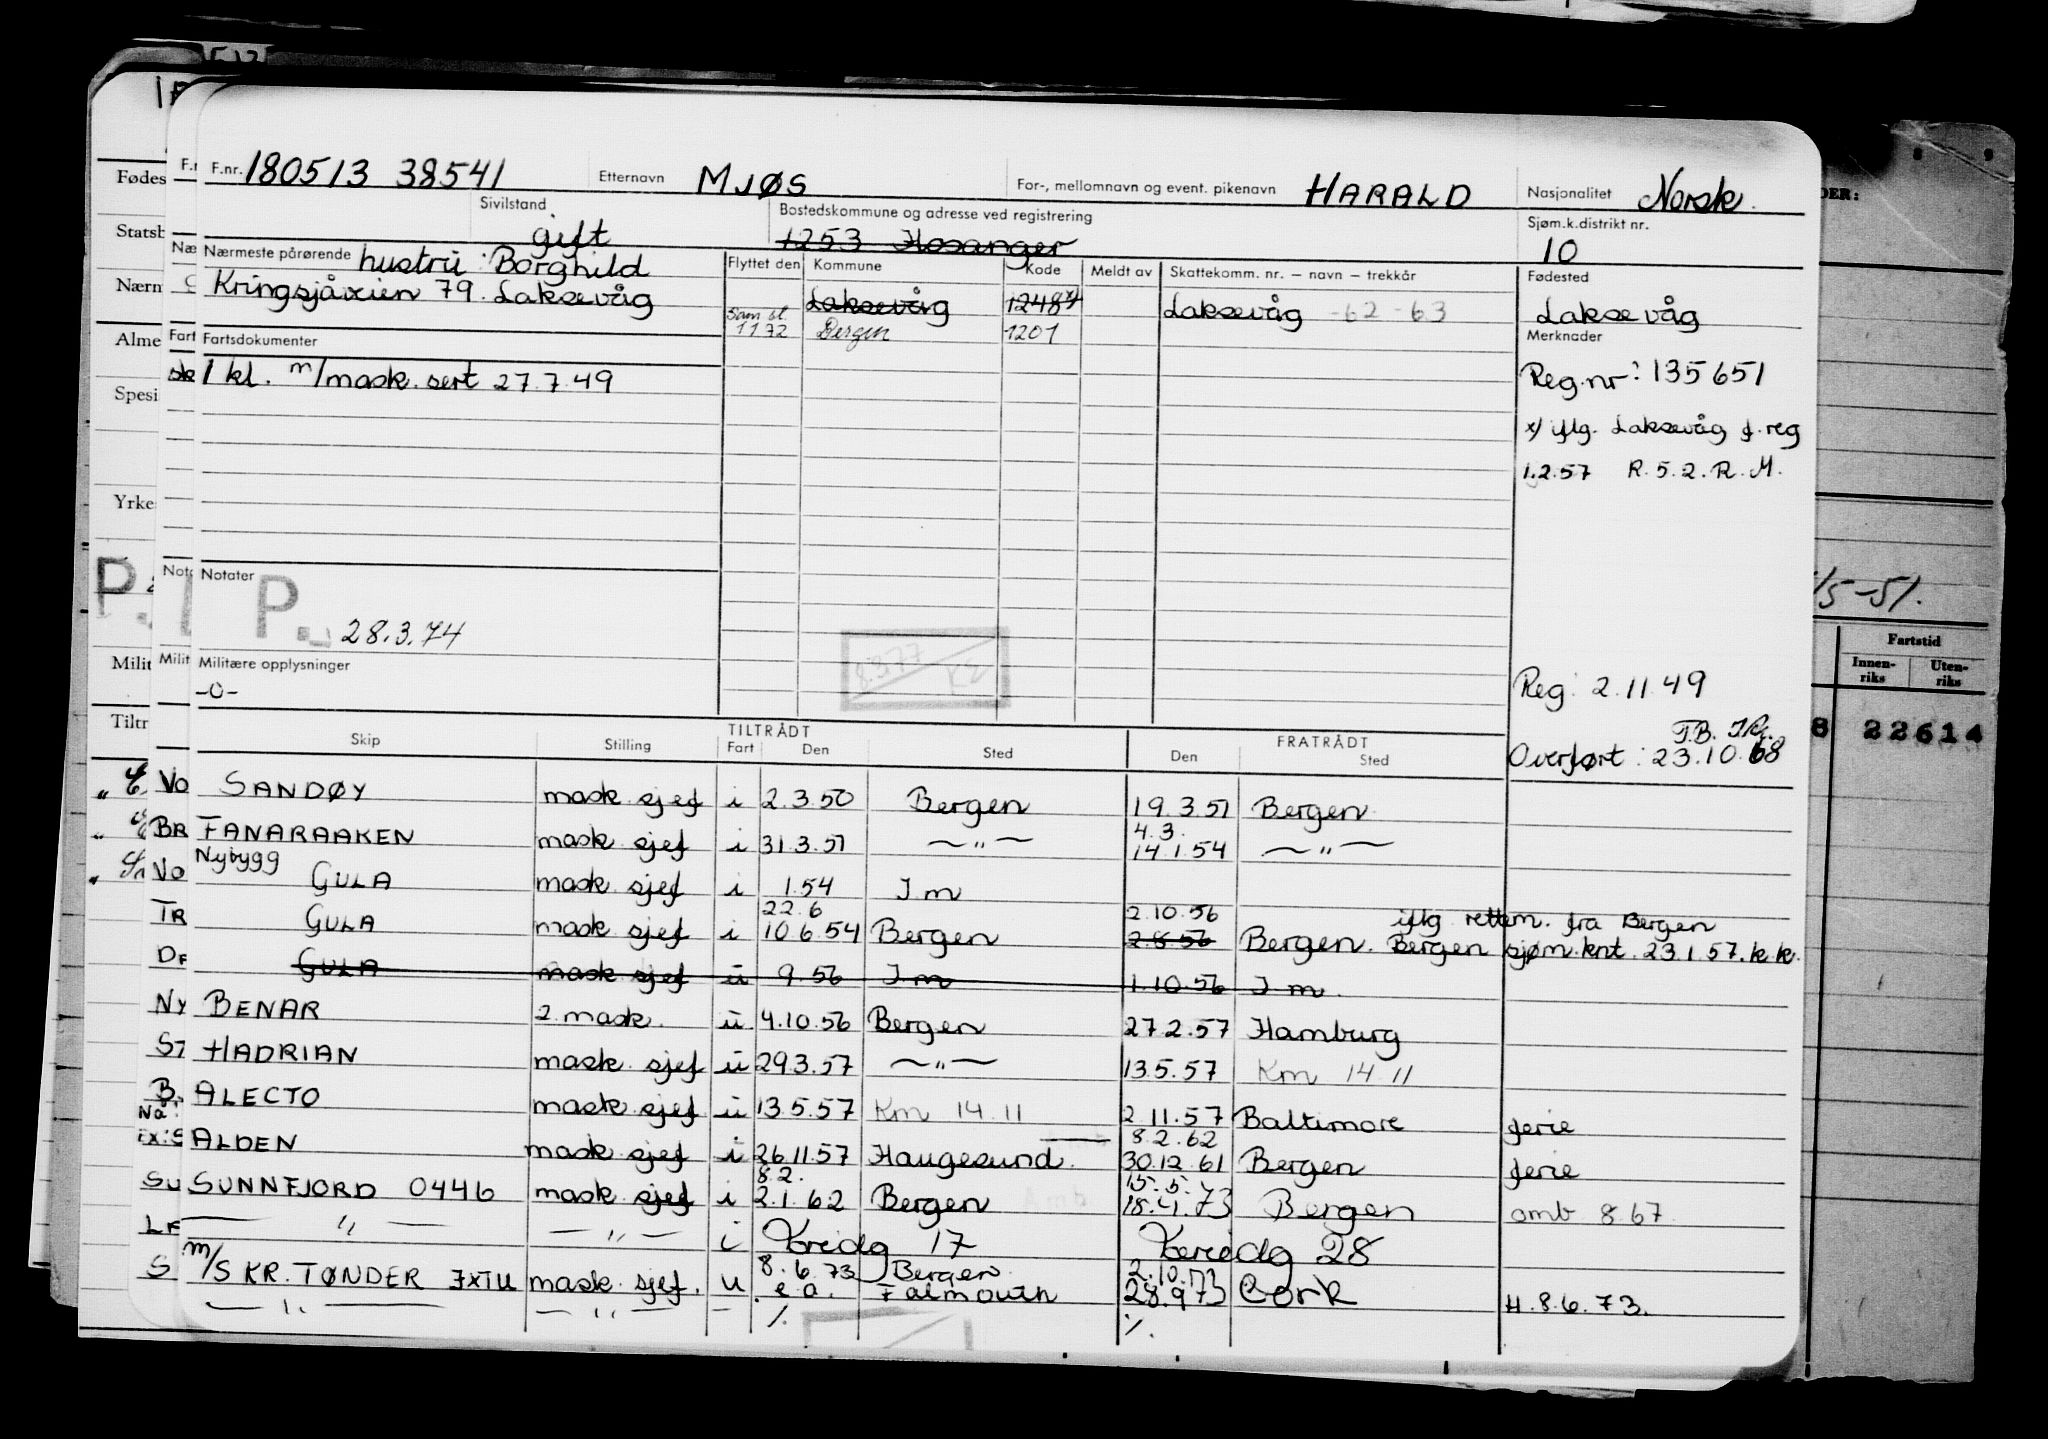 F.nr. 180513 38541 Etternavn MJØS For-, mellomnavn og event. pikenavn HARALD Nasjonalitet Norsk.
Sivilstand gift Bostedskommune og adresse ved registrering 1253 Hosanger Sjøm.k.distrikt nr. 10
Nærmeste pårørende hustru: Borghild
Kringsjåveien 79. Laksevåg
Flyttet den Kommune Kode Meldt av Skattekomm. nr. – navn – trekkår Fødested
Laksevåg 1248 x) Laksevåg -62 -63 Laksevåg
1172 Bergen 1201
Fartsdokumenter Merknader
1 kl. m/mask. sert 27.7.49
Reg.nr: 135651
x) iflg. Laksevåg f.reg
1.2.57 R.5.2. R.M.
Notater
P.
28.3.74
8.3.77
Militære opplysninger
-0-
Reg: 2.11.49
Overført: 23.10.68
TILTRÅDT FRATRÅDT
Skip Stilling Fart Den Sted Den Sted
SANDØY mask. sjef i 2.3.50 Bergen 19.3.51 Bergen
4.3.
FANARAAKEN mask sjef i 31.3.51 — " — 14.1.54 — " —
Nybygg
GULA mask. sjef i 1.54 I m
22.6 2.10.56 iflg rettem. fra Bergen
GULA mask sjef i 10.6.54 Bergen 2.8.56 Bergen. Bergen sjøm.knt. 23.1.57. k k.
GULA mask sjef u 9.56 I m 1.10.56 I m.
BENAR 2. mask. u 4.10.56 Bergen 27.2.57 Hamburg
HADRIAN mask. sjef u 29.3.57 — " — 13.5.57 Km 14.11
ALECTO mask. sjef u 13.5.57 Km 14.11 2.11.57 Baltimore ferie
8.2.62
ALDEN mask sjef i 26.11.57 Haugesund. 30.12.61 Bergen ferie
8.2. 15.5.
SUNNFJORD 0446 mask sjef i 2.1.62 Bergen 18.4.73 Bergen omb 8.67
— " — — " — i Vridg 17 Vridg 28
8.6.73 Bergen 2.10.73
m/S KR. TØNDER JXTU mask. sjef. u e.a. Falmouth 28.9.73 Cork H. 8.6.73.
— " — — " — – ./. ./.
Fødes
Statsb
Nærm
Alme
Spesi
Yrke
P.
Milit
Tiltr
Vo
BR
Vo
TR
DR
NY
ST
B.
Nå:
EX:S
SU
LF
S
DER:
/5-51.
Fartstid
Innen-
riks
Uten-
riks
8 22614